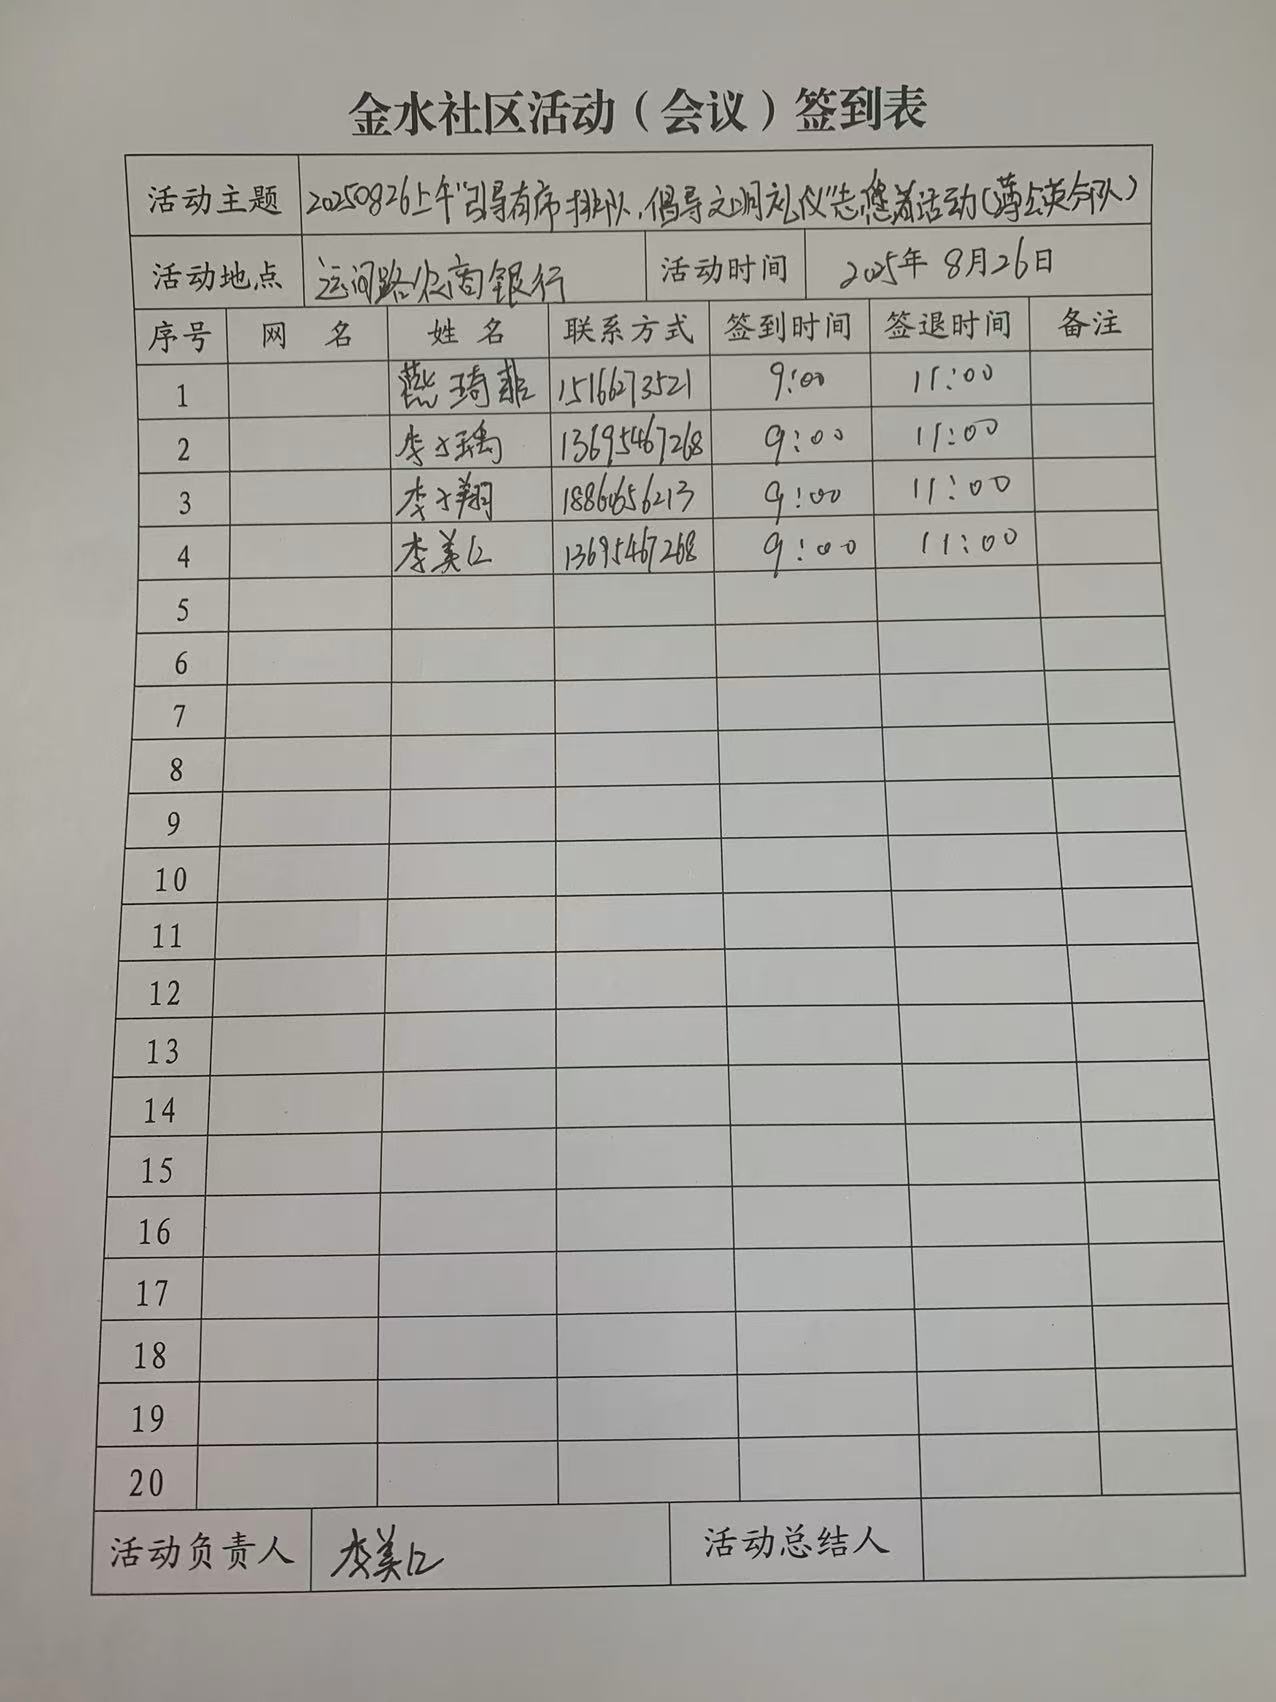 金水社区活动（会议）签到表
活动主题 20250826上午"引导有序排队，倡导文明礼仪"志愿者活动（蒲公英分队）
活动地点 运河路农商银行 活动时间 2025年8月26日
序号 网 名 姓 名 联系方式 签到时间 签退时间 备注
1 燕琦菲 15166273521 9:00 11:00
2 李子瑀 13695467268 9:00 11:00
3 李子翔 9:00 11:00
4 李美仁 13695467268 9:00 11:00
5
6
7
8
9
10
11
12
13
14
15
16
17
18
19
20
活动负责人 李美仁 活动总结人